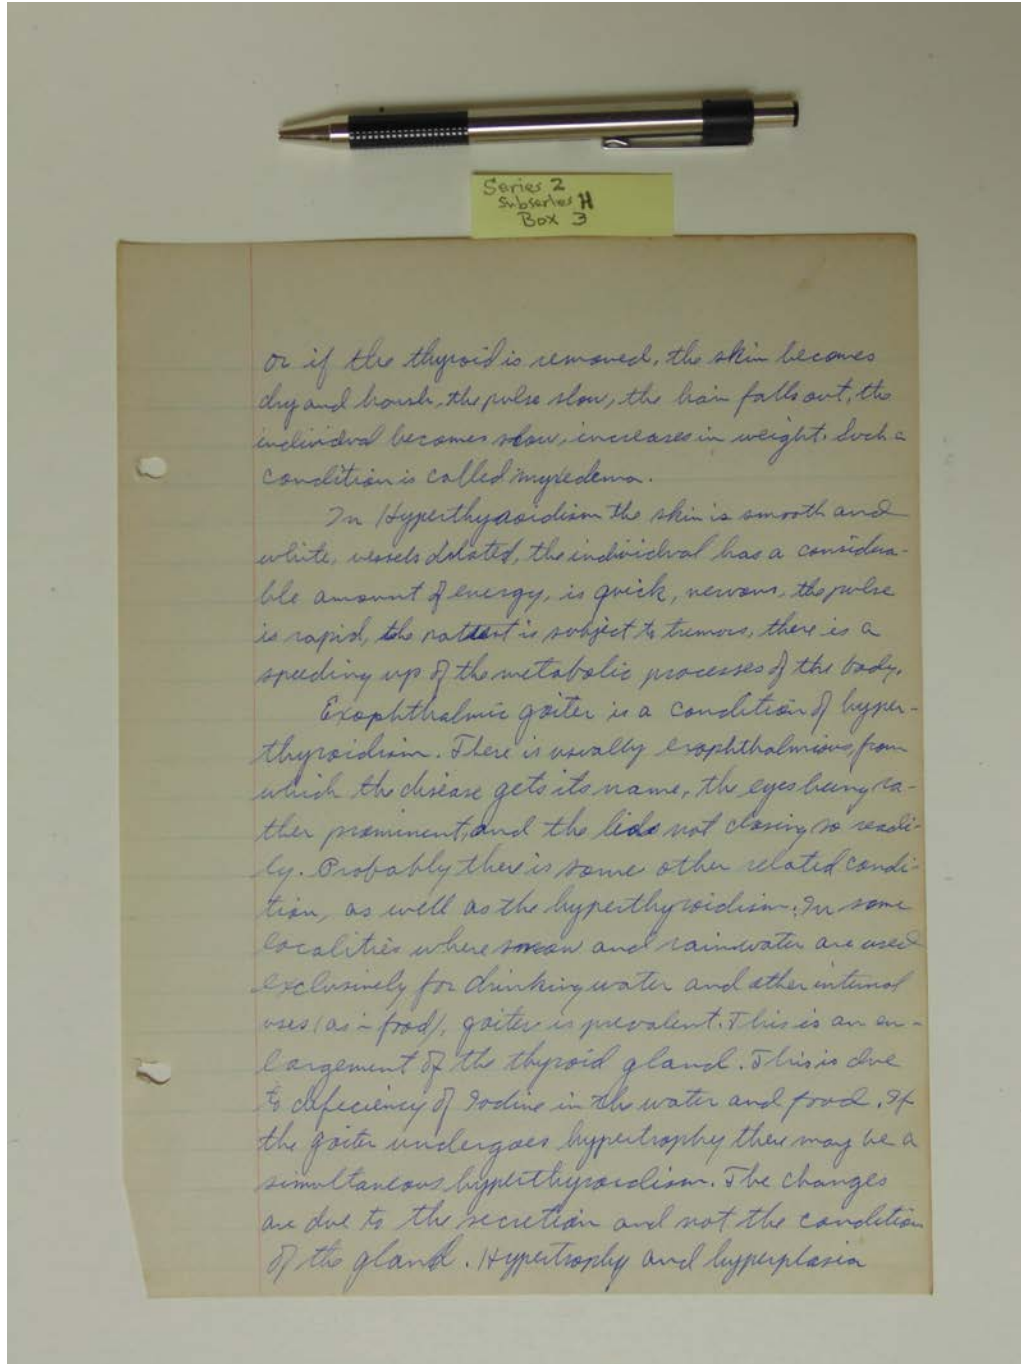 Series 2
Subseries H
Box 3
or if the thyroid is removed, the skin becomes
dry and harsh, the pulse slow, the hair falls out, the
individual becomes slow, increases in weight. Such a
condition is called myxedema.
In Hyperthyroidism the skin is smooth and
white, vessels dilated, the individual has a considera-
ble amount of energy, is quick, nervous, the pulse
is rapid, the patient is subject to tremors, there is a
speeding up of the metabolic processes of the body.
Exophthalmic goiter is a condition of hyper-
thyroidism. There is usually exophthalmious, from
which the disease gets its name, the eyes being ra-
ther prominent, and the lids not closing so readi-
ly. Probably there is some other related condi-
tion, as well as the hyperthyroidism. In some
localities where snow and rainwater are used
exclusively for drinking water and other internal
uses (as in food), goiter is prevalent. This is an en-
largement of the thyroid gland. This is due
to deficiency of Iodine in the water and food. If
the goiter undergoes hypertrophy there may be a
simultaneous hyperthyroidism. The changes
are due to the secretion and not the condition
of the gland. Hypertrophy and hyperplasia